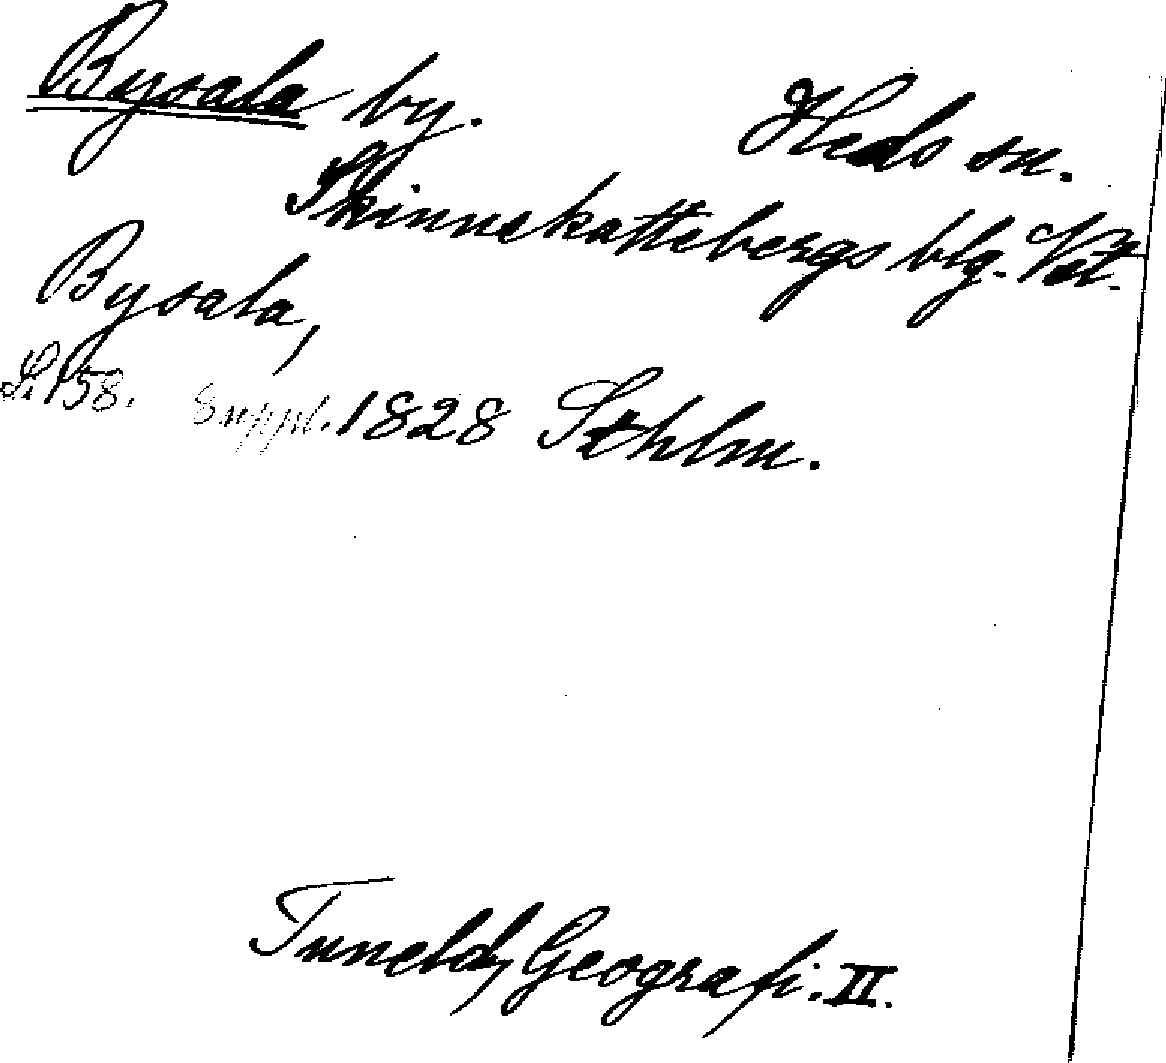 Bysala by. Heds sn.
Skinnskattebergs blg. Vstl.
Bysala,
S. 158. Suppl. 1828 Sthlm.
Tuneld, Geografi. II.